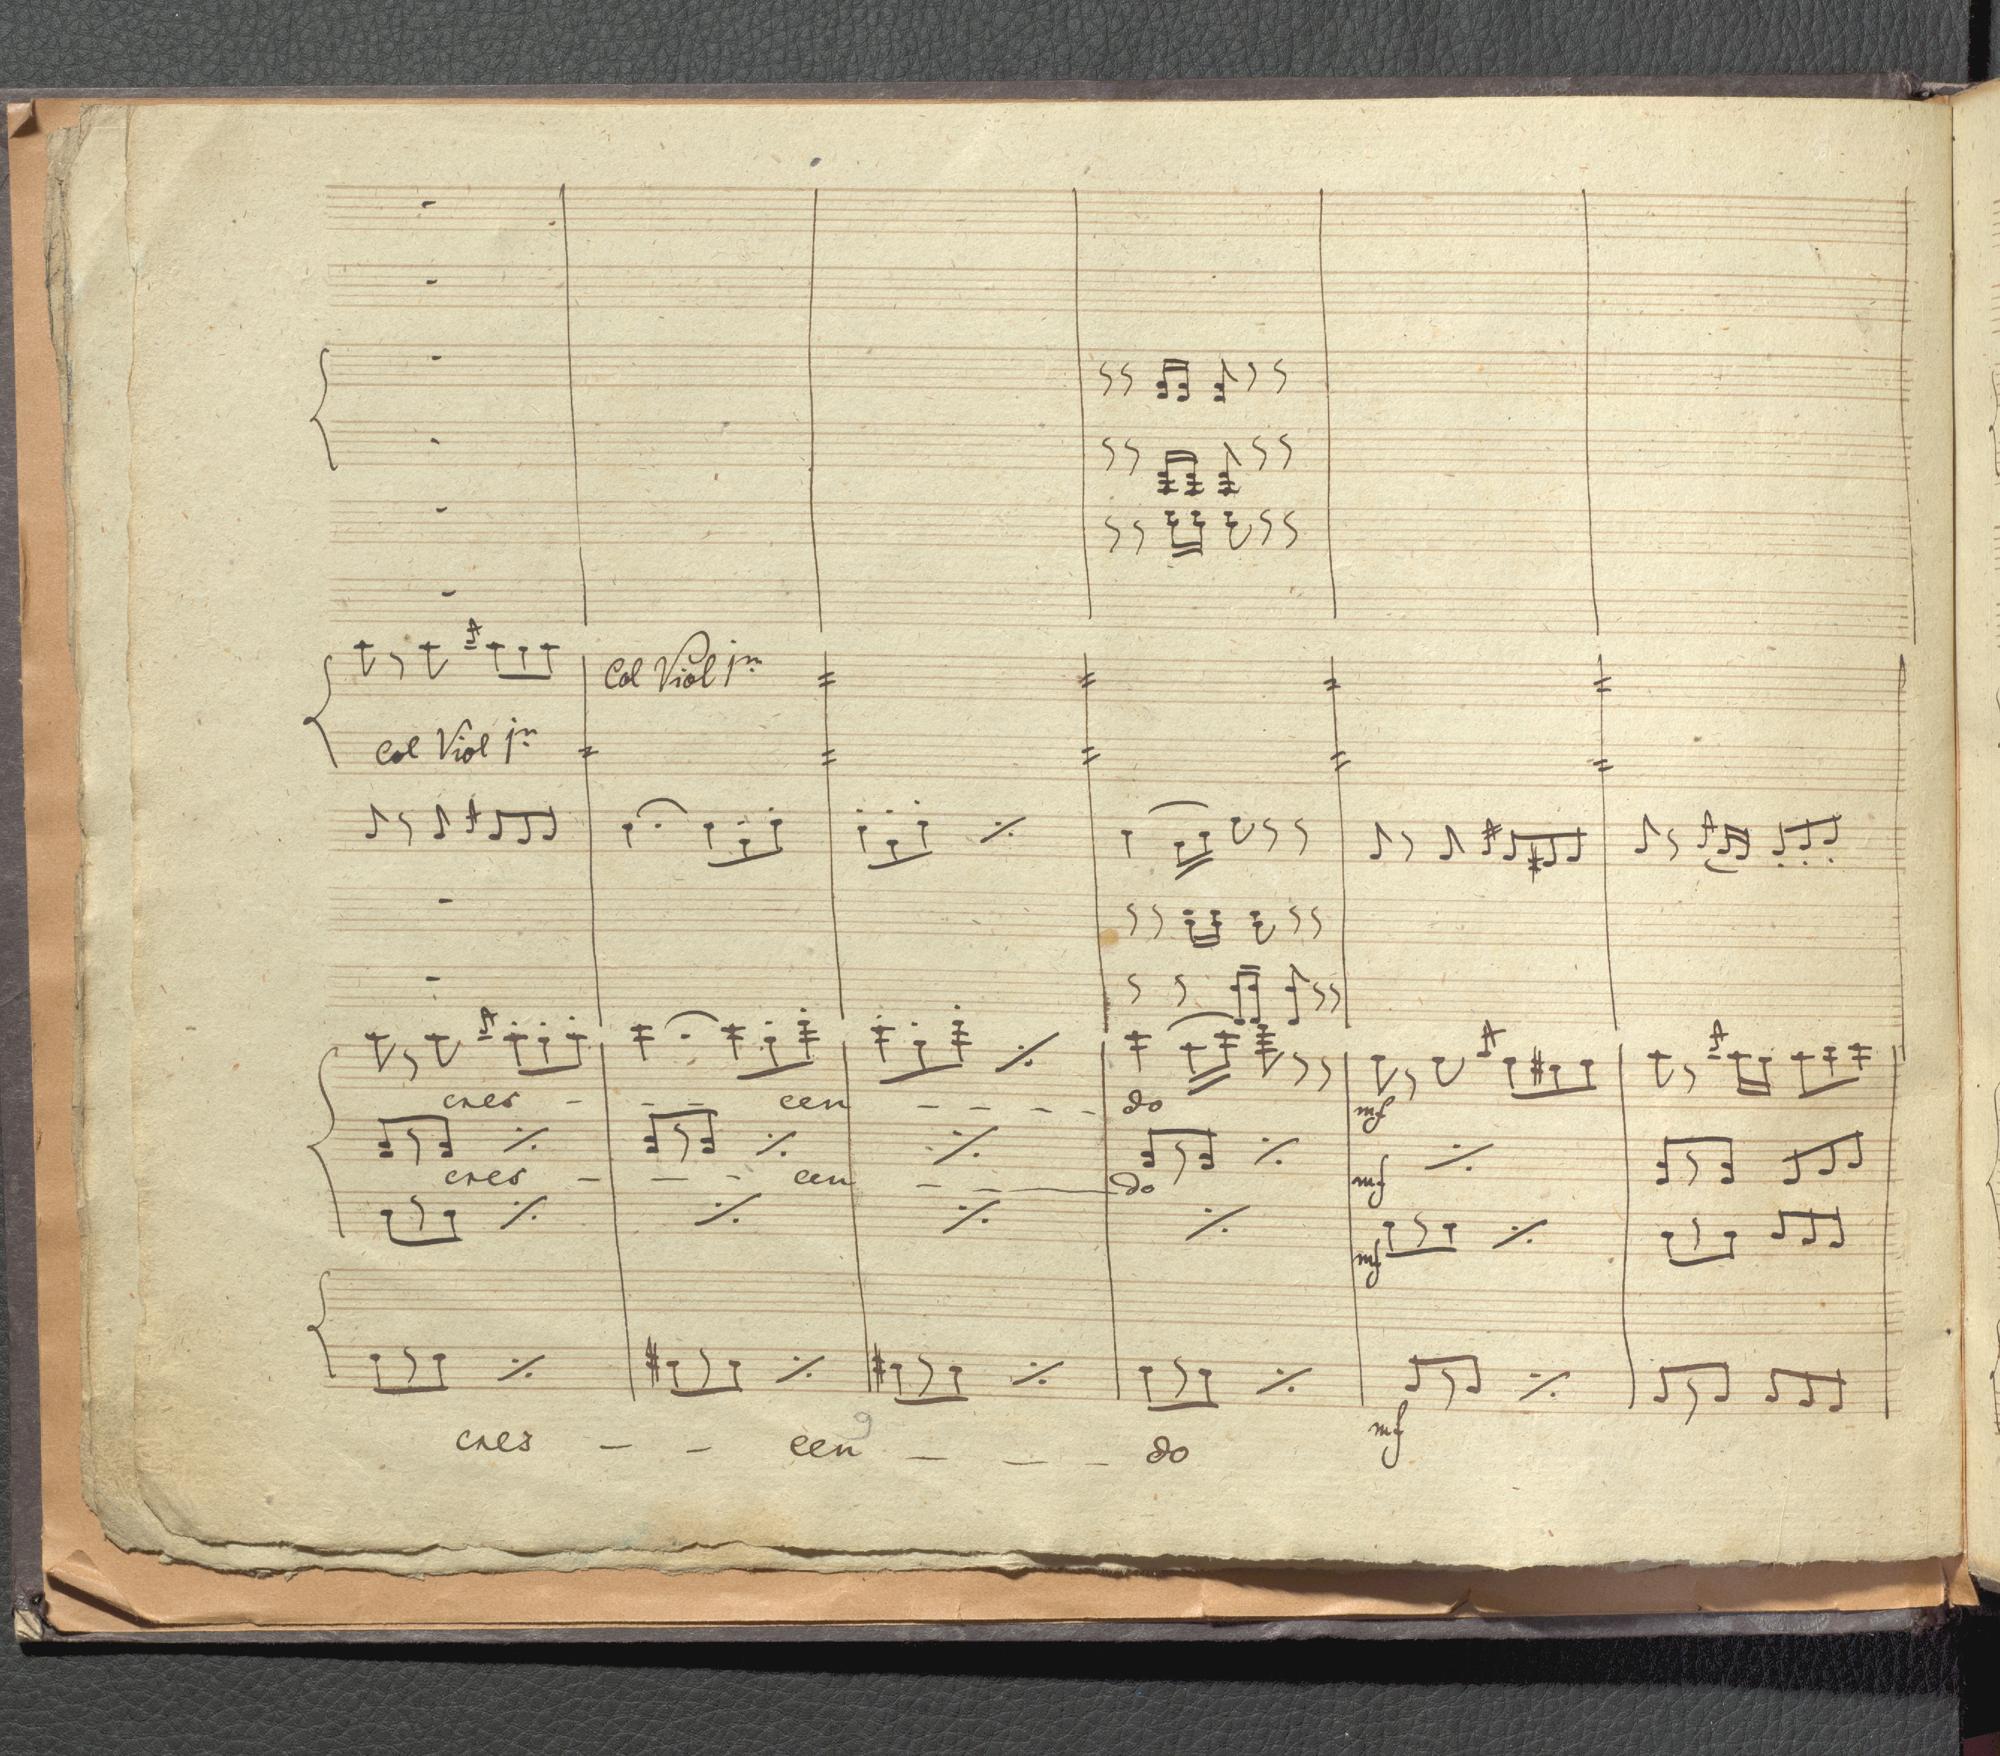 Col Viol 1mo
Col Viol 1mo
cres - - - cen - - - - do mf
cres - - - cen - - do mf
mf
cres - - cen - - - do mf
9